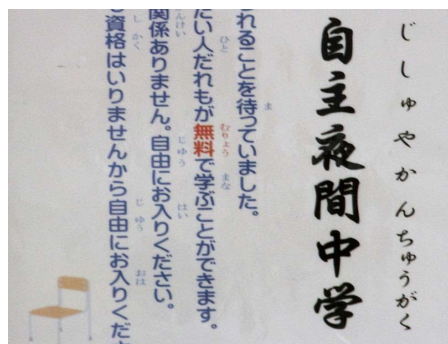 じしゅやかんちゅうがく
自主夜間中学
れることを待っていました。
たい人だれもが無料で学ぶことができます。
関係ありません。自由にお入りください。
資格はいりませんから自由にお入りくださ